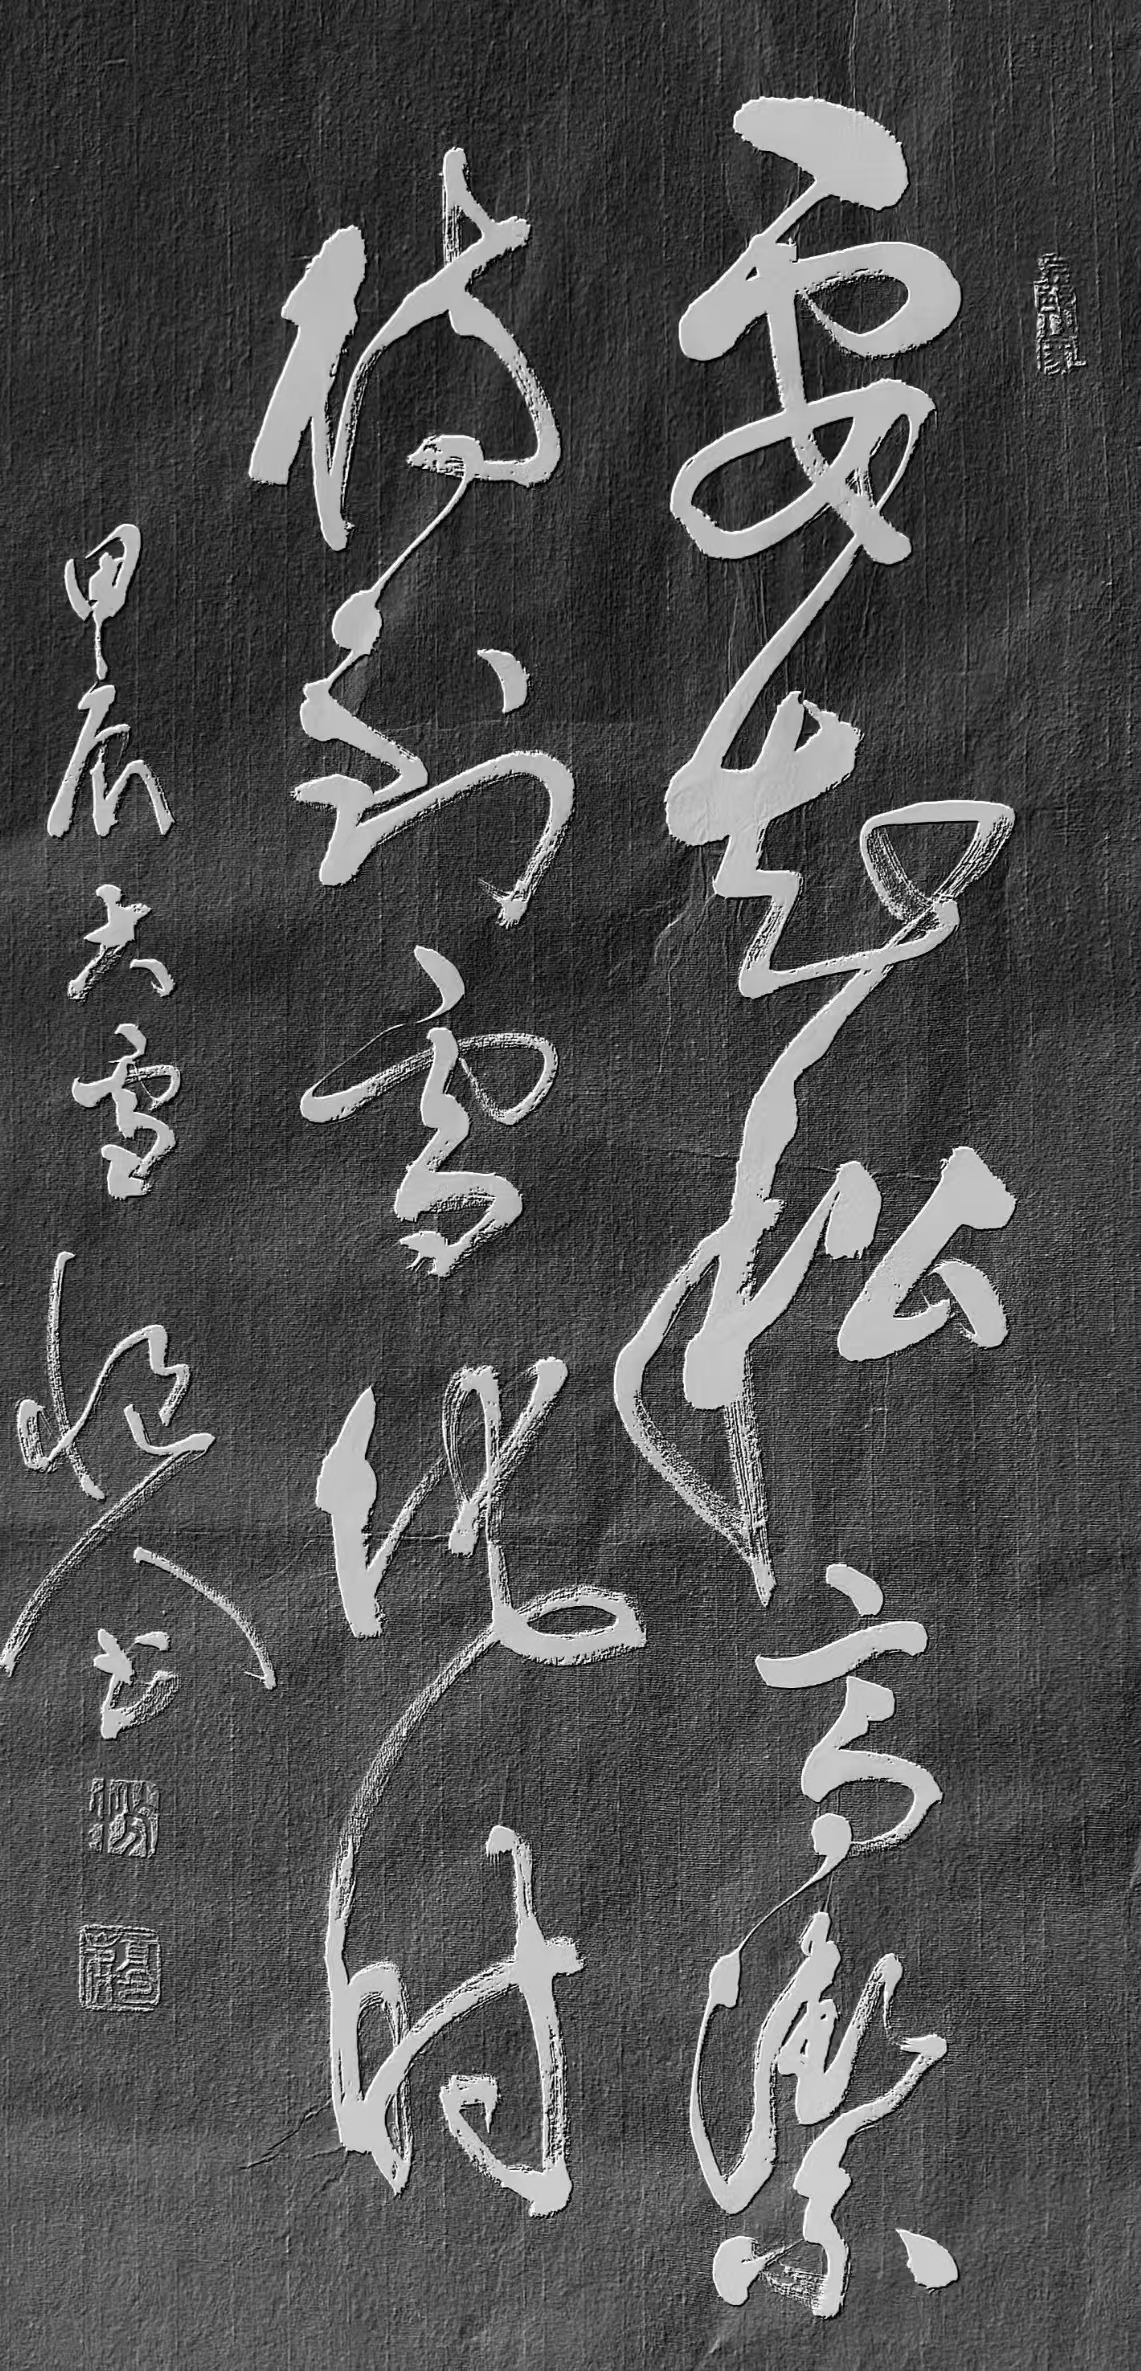 要知松高潔
待到雪化时
甲辰大雪 人书